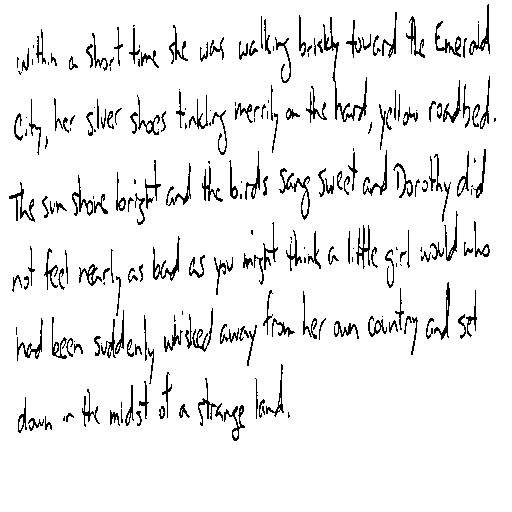 within a short time she was walking briskly toward the Emerald
City, her silver shoes tinkling merrily on the hard, yellow roadbed.
The sun shone bright and the birds sang sweet and Dorothy did
not feel nearly as bad as you might think a little girl would who
had been suddenly whisked away from her own country and set
down in the midst of a strange land.